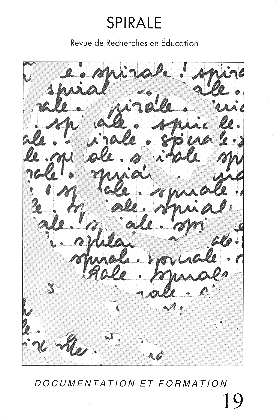 SPIRALE
Revue de Recherches en Éducation
e. spirale. spira
spiral ale.
rale. irale.
sp ale. spirale.
ale. irale. spirale.
le. spi ale. s irale sp
rale. spirai
sp ale. spirale.
e. sp ale. spiral
ale. s ale. spi
spirai ale.
spirale. spirale.
irale. spirale
rale.
DOCUMENTATION ET FORMATION
19